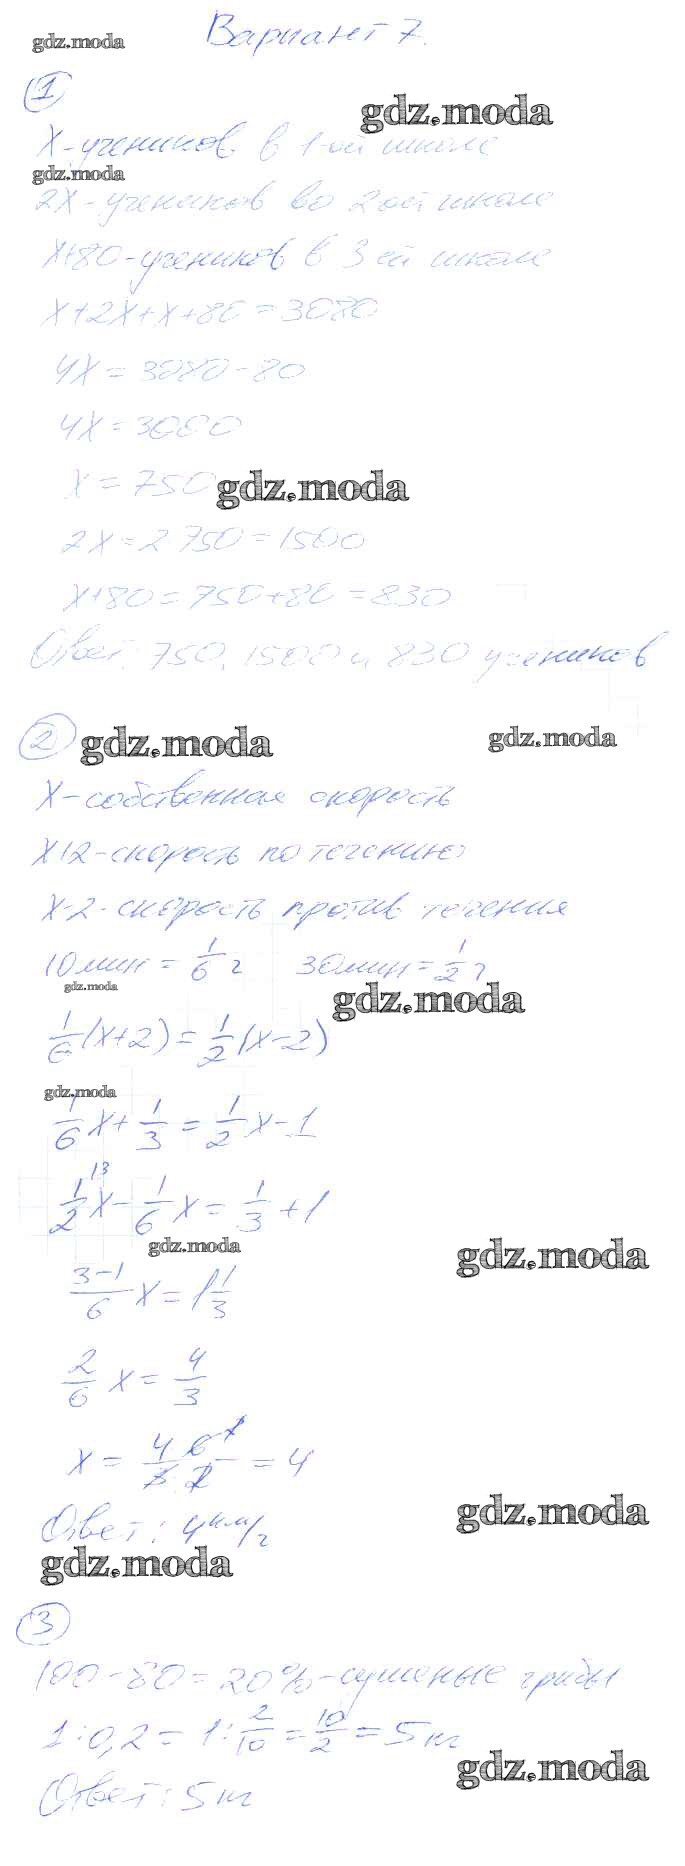 Вариант 7.
gdz.moda
1
gdz.moda
x - учеников в 1-ой школе
gdz.moda
2x - учеников во 2 ой школе
x+80 - учеников в 3 ей школе
x+2x+x+80=3080
4x=3080-80
4x=3000
x=750
gdz.moda
2x=2·750=1500
x+80=750+80=830
Ответ: 750, 1500 и 830 учеников
2
gdz.moda
gdz.moda
x - собственная скорость
x+2 - скорость по течению
x-2 - скорость против течения
10 мин = 1/6 ч 30 мин = 1/2 ч
gdz.moda
gdz.moda
1/6(x+2)=1/2(x-2)
gdz.moda
1/6x+1/3=1/2x-1
1/2\3x-1/6x=1/3+1
gdz.moda
gdz.moda
3-1/6 x=1 1/3
2/6 x=4/3
x= 4·6/3·2 = 4
gdz.moda
Ответ: 4 км/ч
gdz.moda
3
100-80=20% - сушеные грибы
1:0,2=1:2/10=10/2=5 кг
gdz.moda
Ответ: 5 кг